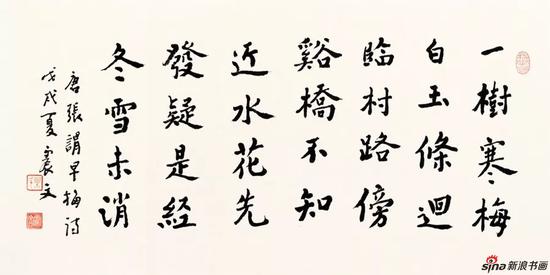 一樹寒梅
白玉條迴
臨村路傍
谿橋不知
近水花先
發疑是經
冬雪未消
唐張謂早梅詩
戊戌夏 文
sina新浪书画